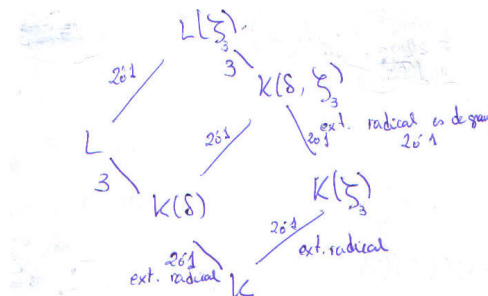 L(ζ₃)
2ó1
3
K(δ, ζ₃)
ext. radical es de grau
2ó1
2ó1
2ó1
L
3
K(δ)
K(ζ₃)
2ó1
2ó1
ext. radical
ext. radical
K